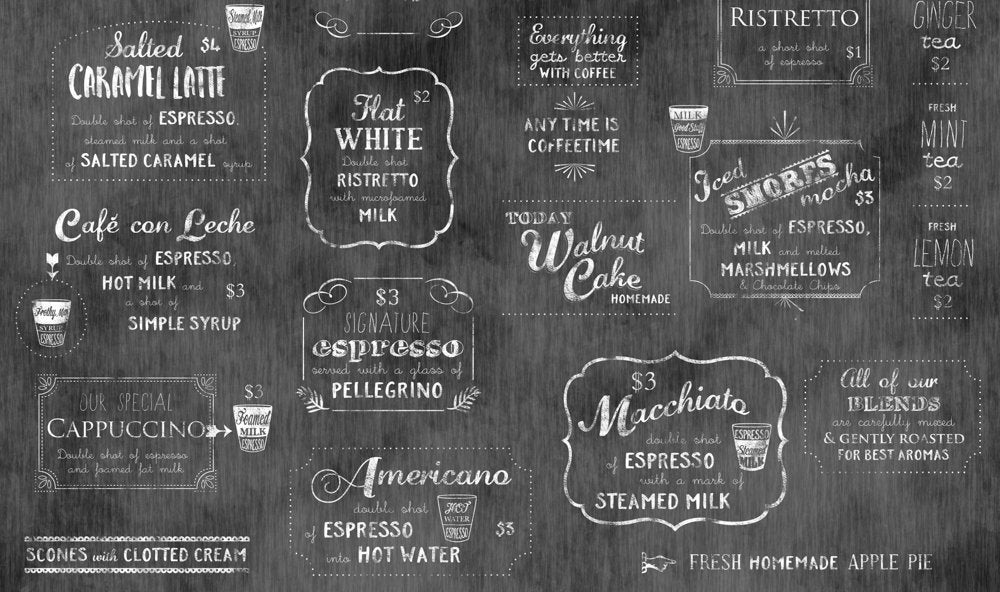 Salted $4
CARAMEL LATTE
Double shot of ESPRESSO,
steamed milk and a shot
of SALTED CARAMEL syrup
Steamed Milk
SYRUP
ESPRESSO
Café con Leche
Double shot of ESPRESSO,
HOT MILK and
a shot of
SIMPLE SYRUP
$3
Frothy Milk
SYRUP
ESPRESSO
OUR SPECIAL
CAPPUCCINO
Double shot of espresso
and foamed fat milk
$3
Foamed
MILK
ESPRESSO
SCONES with CLOTTED CREAM
Flat $2
WHITE
Double shot
RISTRETTO
with microfoamed
MILK
$3
SIGNATURE
espresso
served with a glass of
PELLEGRINO
Americano
double shot
of ESPRESSO
into HOT WATER
$3
HOT
WATER
ESPRESSO
Everything
gets better
WITH COFFEE
ANY TIME IS
COFFEETIME
TODAY
Walnut
Cake
HOMEMADE
$3
Macchiato
double shot
of ESPRESSO
with a mark of
STEAMED MILK
ESPRESSO
Steamed
RISTRETTO
a short shot
of espresso
$1
MILK
Good Stuff
ESPRESSO
Iced
SMORES
mocha
$3
Double shot of ESPRESSO,
MILK and melted
MARSHMELLOWS
& Chocolate Chips
All of our
BLENDS
are carefully mixed
& GENTLY ROASTED
FOR BEST AROMAS
FRESH HOMEMADE APPLE PIE
GINGER
tea
$2
FRESH
MINT
tea
$2
FRESH
LEMON
tea
$2